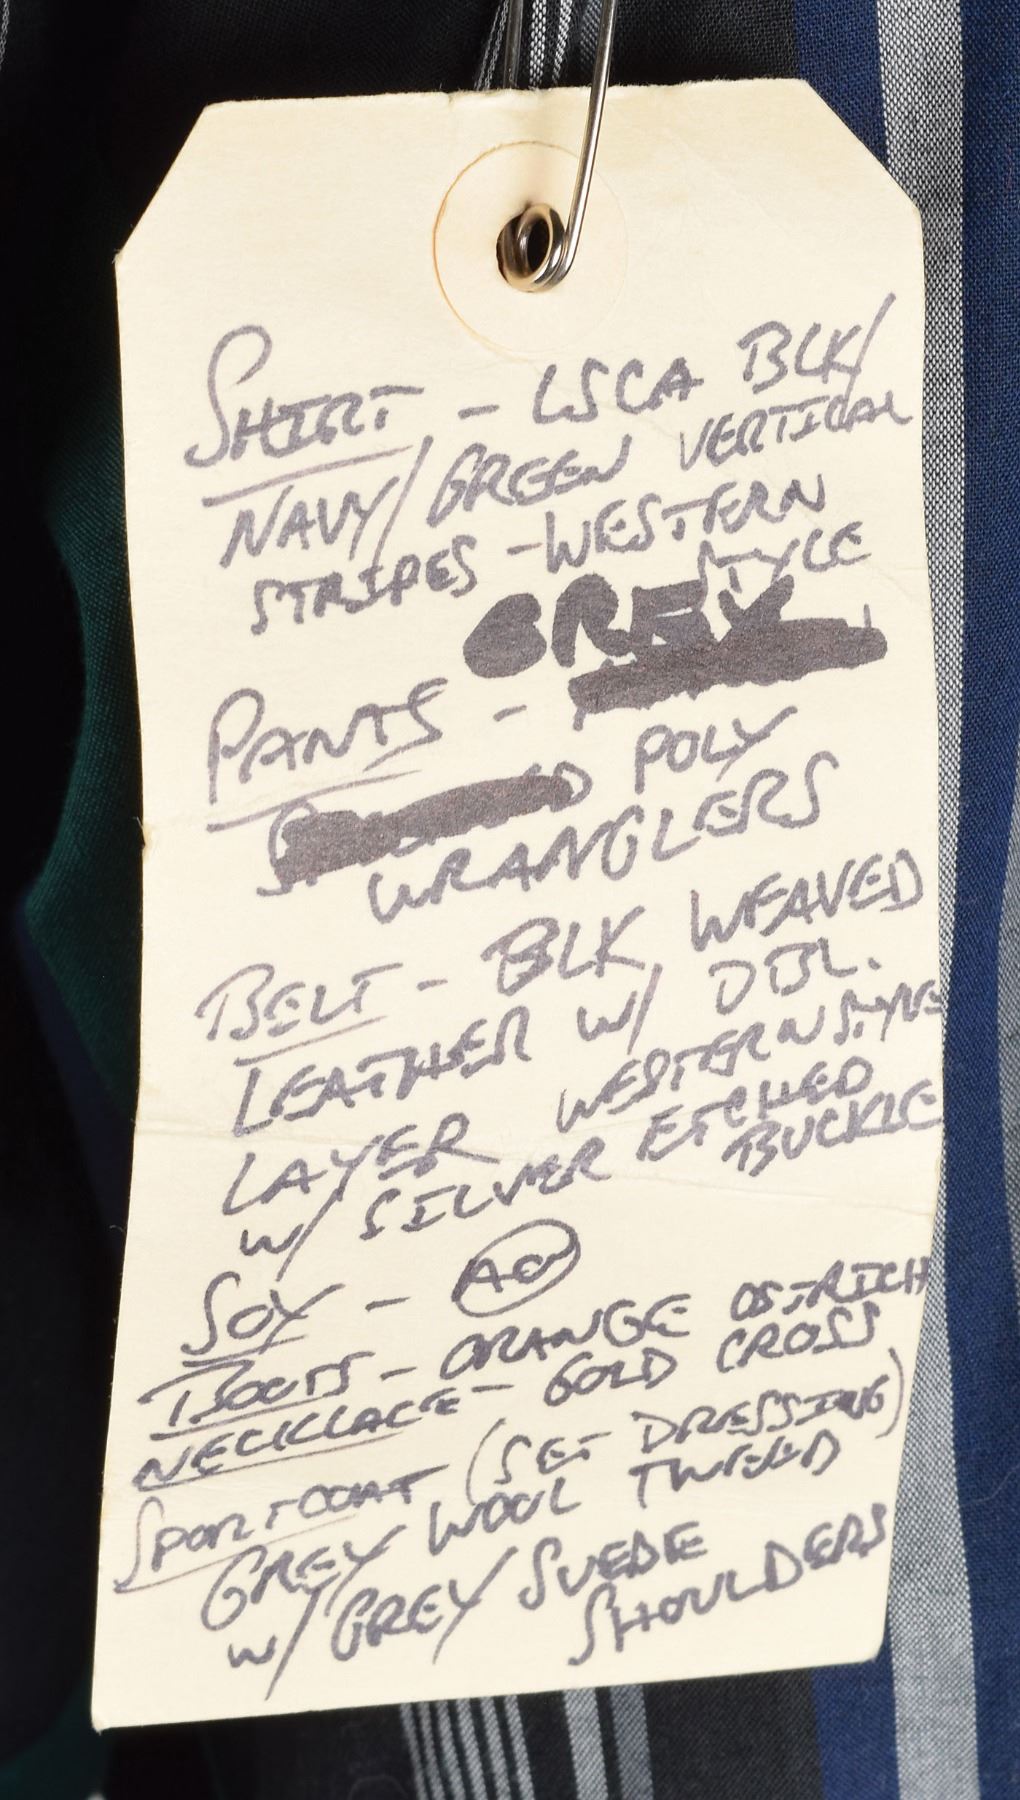 SHIRT - LSCA BLK/
NAVY/GREEN VERTICAL
STRIPES - WESTERN
STYLE
GREY
PANTS -
POLY
WRANGLERS
BELT - BLK WEAVED
LEATHER W/ DBL.
LAYER WESTERN STYLE
W/ SILVER ETCHED
BUCKLE
SOX -
BOOTS - ORANGE OSTRICH
NECKLACE - GOLD CROSS
SPORTCOAT (SET DRESSING)
GREY WOOL TWEED
W/ GREY SUEDE
SHOULDERS